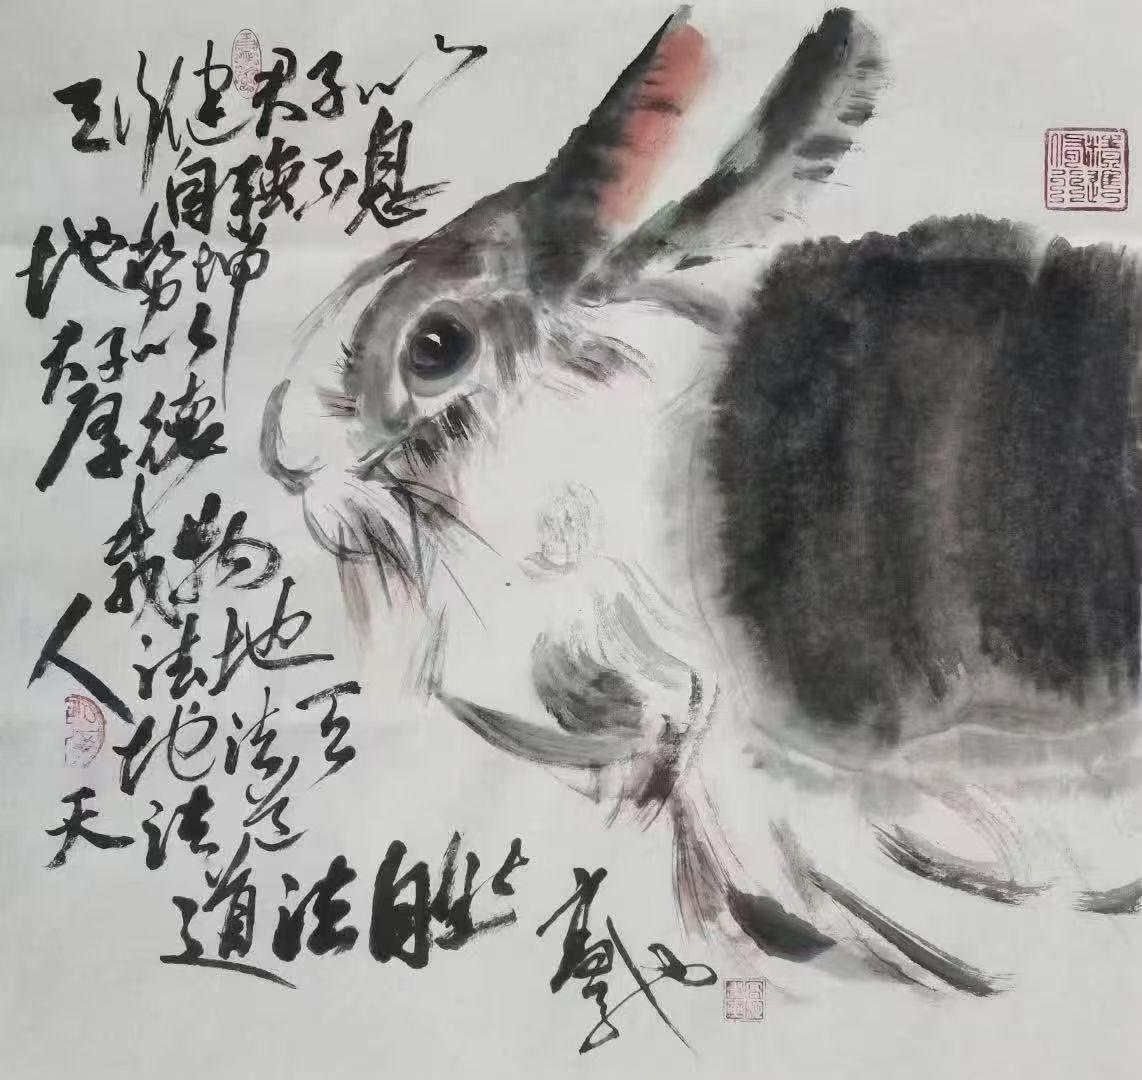 天行健君子以
自強不息
地势坤
君子以
厚德
载物
人法地
地法天
天法道
道法自然